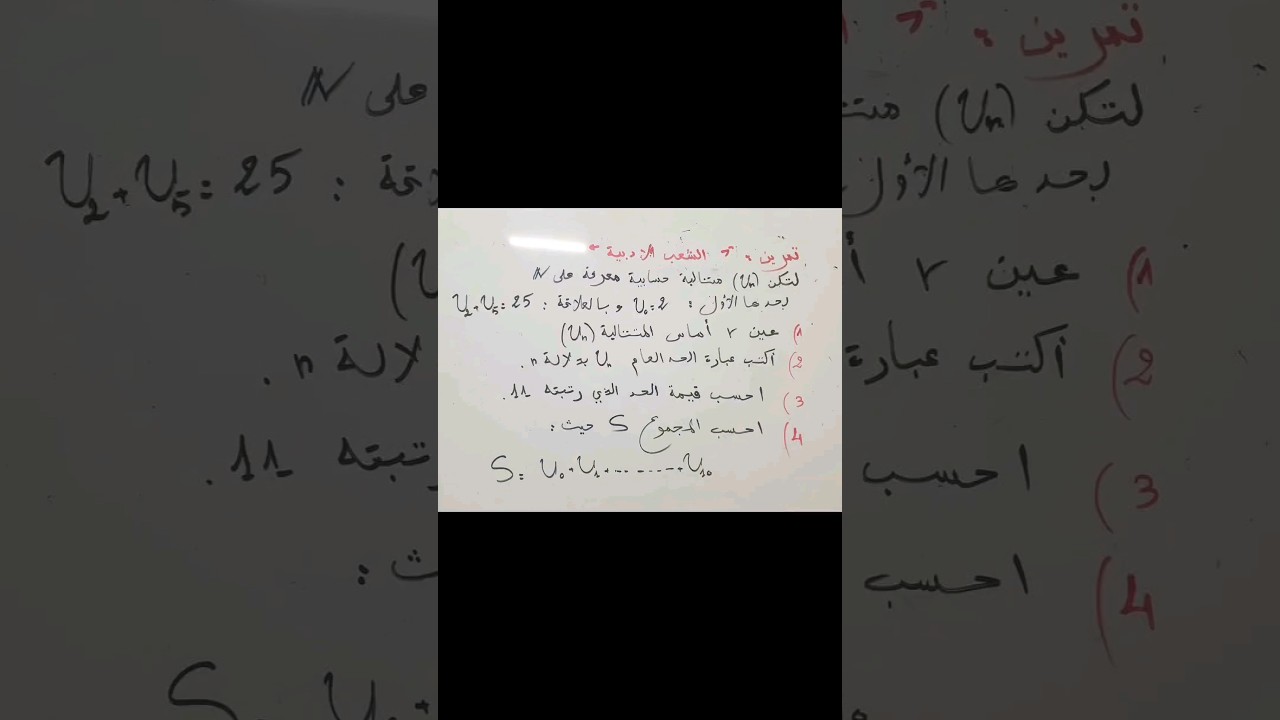 تمرين: " الشعب الأدبية "
لتكن (Uₙ) متتالية حسابية معرفة على ℕ
بحدها الأول: U₀=2 و بالعلاقة: U₂+U₅=25
1) عين r أساس المتتالية (Uₙ)
2) أكتب عبارة الحد العام Uₙ بدلالة n.
3) احسب قيمة الحد الذي رتبته 11.
4) احسب المجموع S حيث:
S= U₀+U₁+..........+U₁₀